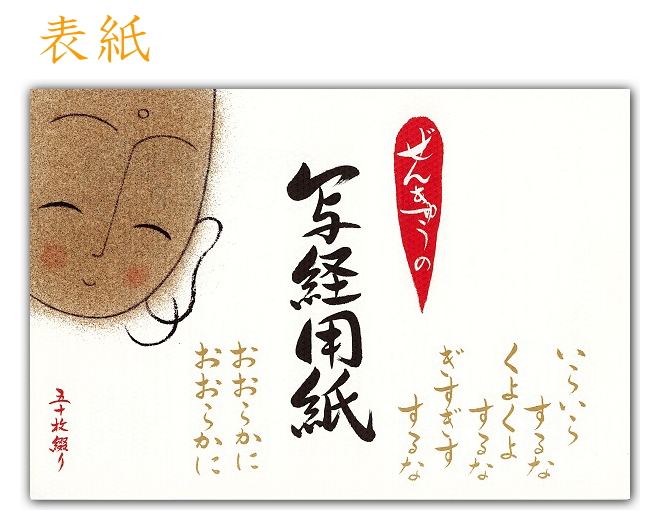 表紙
ぜんきゅうの
写経用紙
いらいら
するな
くよくよ
するな
ぎすぎす
するな
おおらかに
おおらかに
五十枚綴り